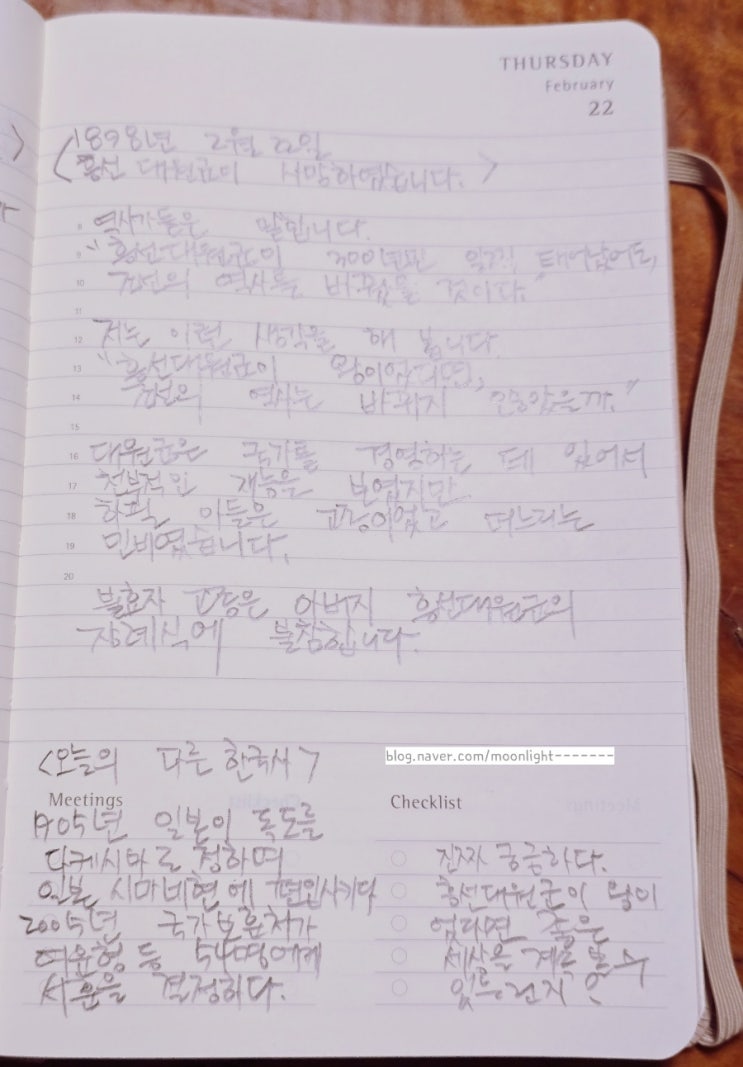 THURSDAY
February
22
<1898년 2월 22일
흥선 대원군이 사망하였습니다.>
8 역사가들은 말합니다.
9 "흥선대원군이 300년만 일찍 태어났어도,
10 조선의 역사를 바꿨을 것이다."
11
12 저는 이런 생각을 해 봅니다.
13 "흥선대원군이 왕이었다면,
14 조선의 역사는 바뀌지 않았을까."
15
16 대원군은 국가를 경영하는 데 있어서
17 천부적인 재능을 보였지만
18 하필 아들은 고종이었고 며느리는
19 민비였습니다.
20
불효자 고종은 아버지 흥선대원군의
장례식에 불참합니다.
<오늘의 다른 한국사>
blog.naver.com/moonlight-------
Meetings
1905년 일본이 독도를
다케시마로 정하며
일본 시마네현에 편입시키다
2005년 국가보훈처가
여운형 등 54명에게
서훈을 결정하다.
Checklist
진짜 궁금하다.
흥선대원군이 왕이
었다면 좋은
세상을 계속 볼 수
있